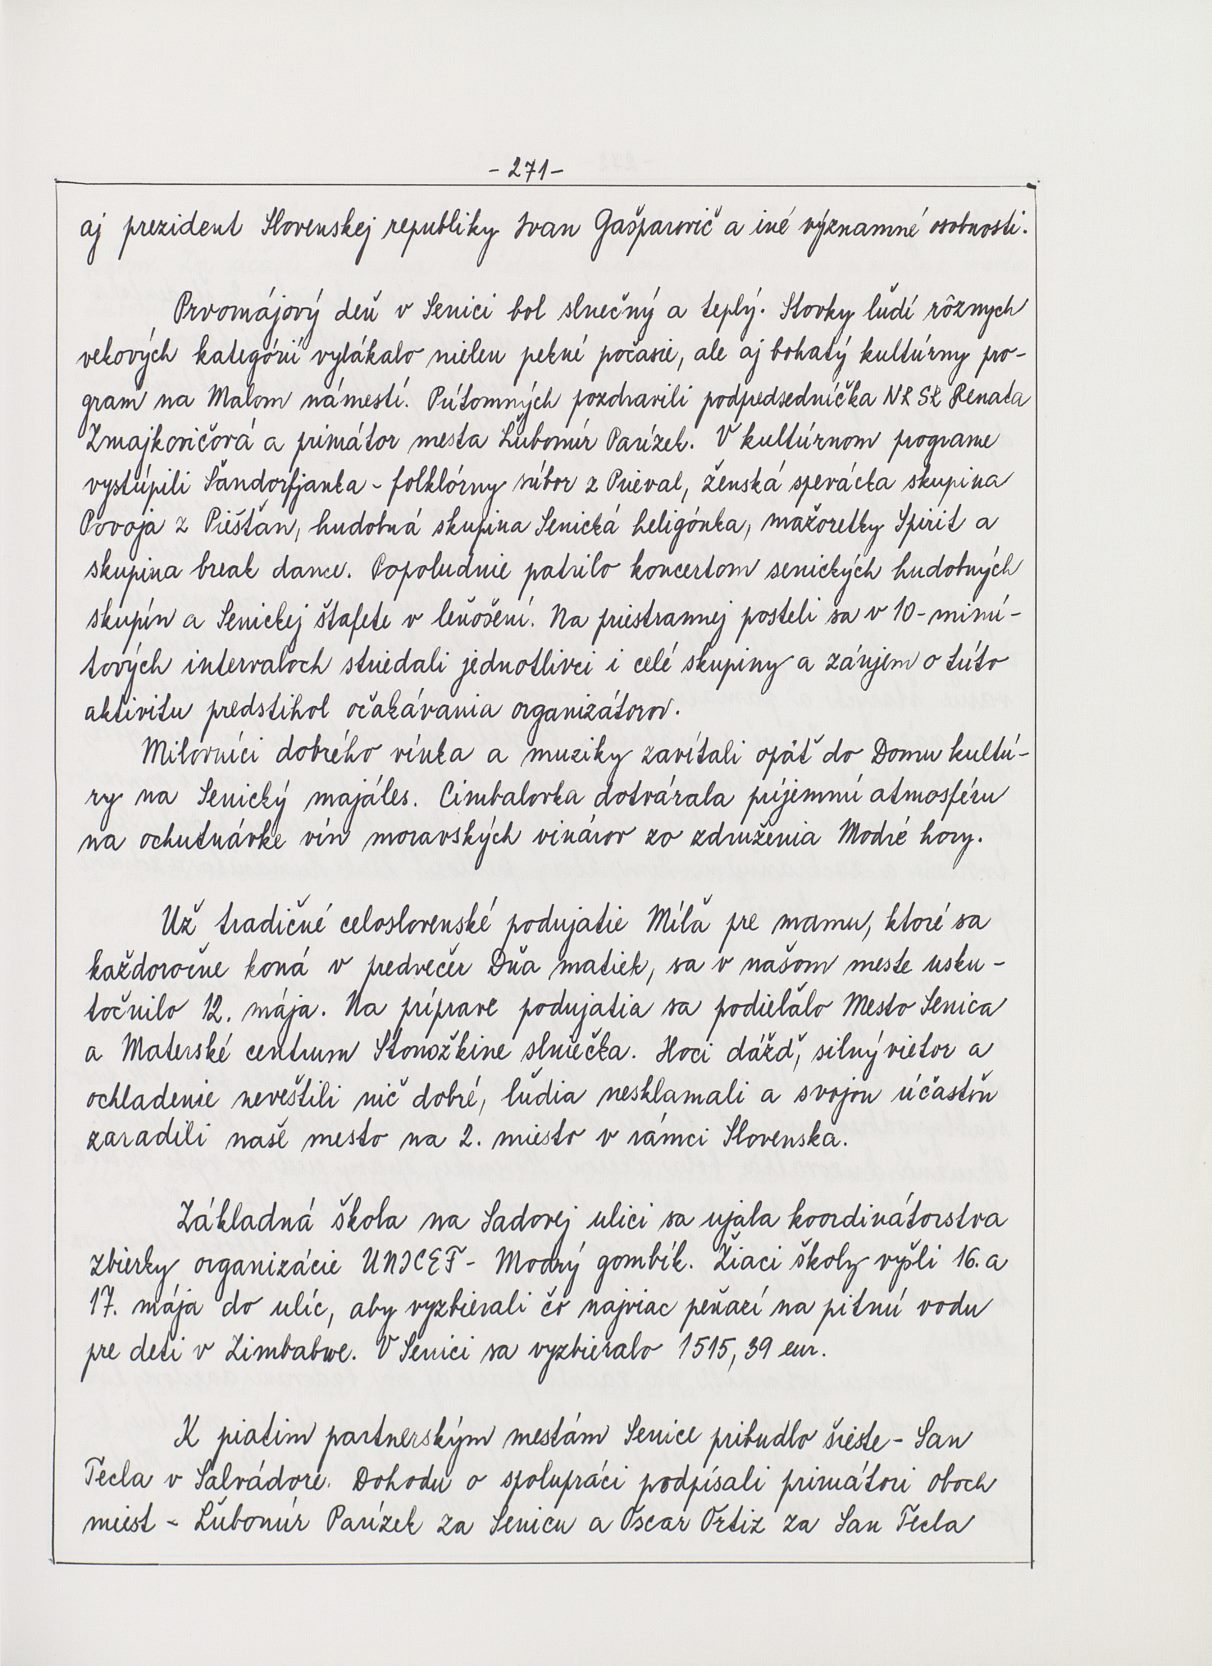 - 271 -
aj prezident Slovenskej republiky Ivan Gašparovič a iné významné osobnosti.
Prvomájový deň v Senici bol slnečný a teplý. Stovky ľudí rôznych
vekových kategórií vylákalo nielen pekné počasie, ale aj bohatý kultúrny pro-
gram na Malom námestí. Prítomných pozdravili podpredsedníčka NR SR Renata
Zmajkovičová a primátor mesta Ľubomír Parízek. V kultúrnom programe
vystúpili Šándorfjanka - folklórny súbor z Prieval, ženská spevácka skupina
Povoja z Piešťan, hudobná skupina Senická heligónka, mažoretky Spirit a
skupina break dance. Popoludnie patrilo koncertom senických hudobných
skupín a Senickej štafete v leňošení. Na priestrannej posteli sa v 10-minú-
tových intervaloch striedali jednotlivci i celé skupiny a záujem o túto
aktivitu predstihol očakávania organizátorov.
Milovníci dobrého vínka a muziky zavítali opäť do Domu kultú-
ry na Senický majáles. Cimbalovka dotvárala príjemnú atmosféru
na ochutnávke vín moravských vinárov zo združenia Modré hory.
Už tradičné celoslovenské podujatie Míľa pre mamu, ktoré sa
každoročne koná v predvečer Dňa matiek, sa v našom meste usku-
točnilo 12. mája. Na príprave podujatia sa podieľalo Mesto Senica
a Materské centrum Stonožkine slniečka. Hoci dážď, silný vietor a
ochladenie neveštili nič dobré, ľudia nesklamali a svojou účasťou
zaradili naše mesto na 2. miesto v rámci Slovenska.
Základná škola na Sadovej ulici sa ujala koordinátorstva
zbierky organizácie UNICEF - Modrý gombík. Žiaci školy vyšli 16. a
17. mája do ulíc, aby vyzbierali čo najviac peňazí na pitnú vodu
pre deti v Zimbabwe. V Senici sa vyzbieralo 1515,39 eur.
K piatim partnerským mestám Senice pribudlo šieste - San
Tecla v Salvádore. Dohodu o spolupráci podpísali primátori oboch
miest - Ľubomír Parízek za Senicu a Oscar Ortiz za San Tecla